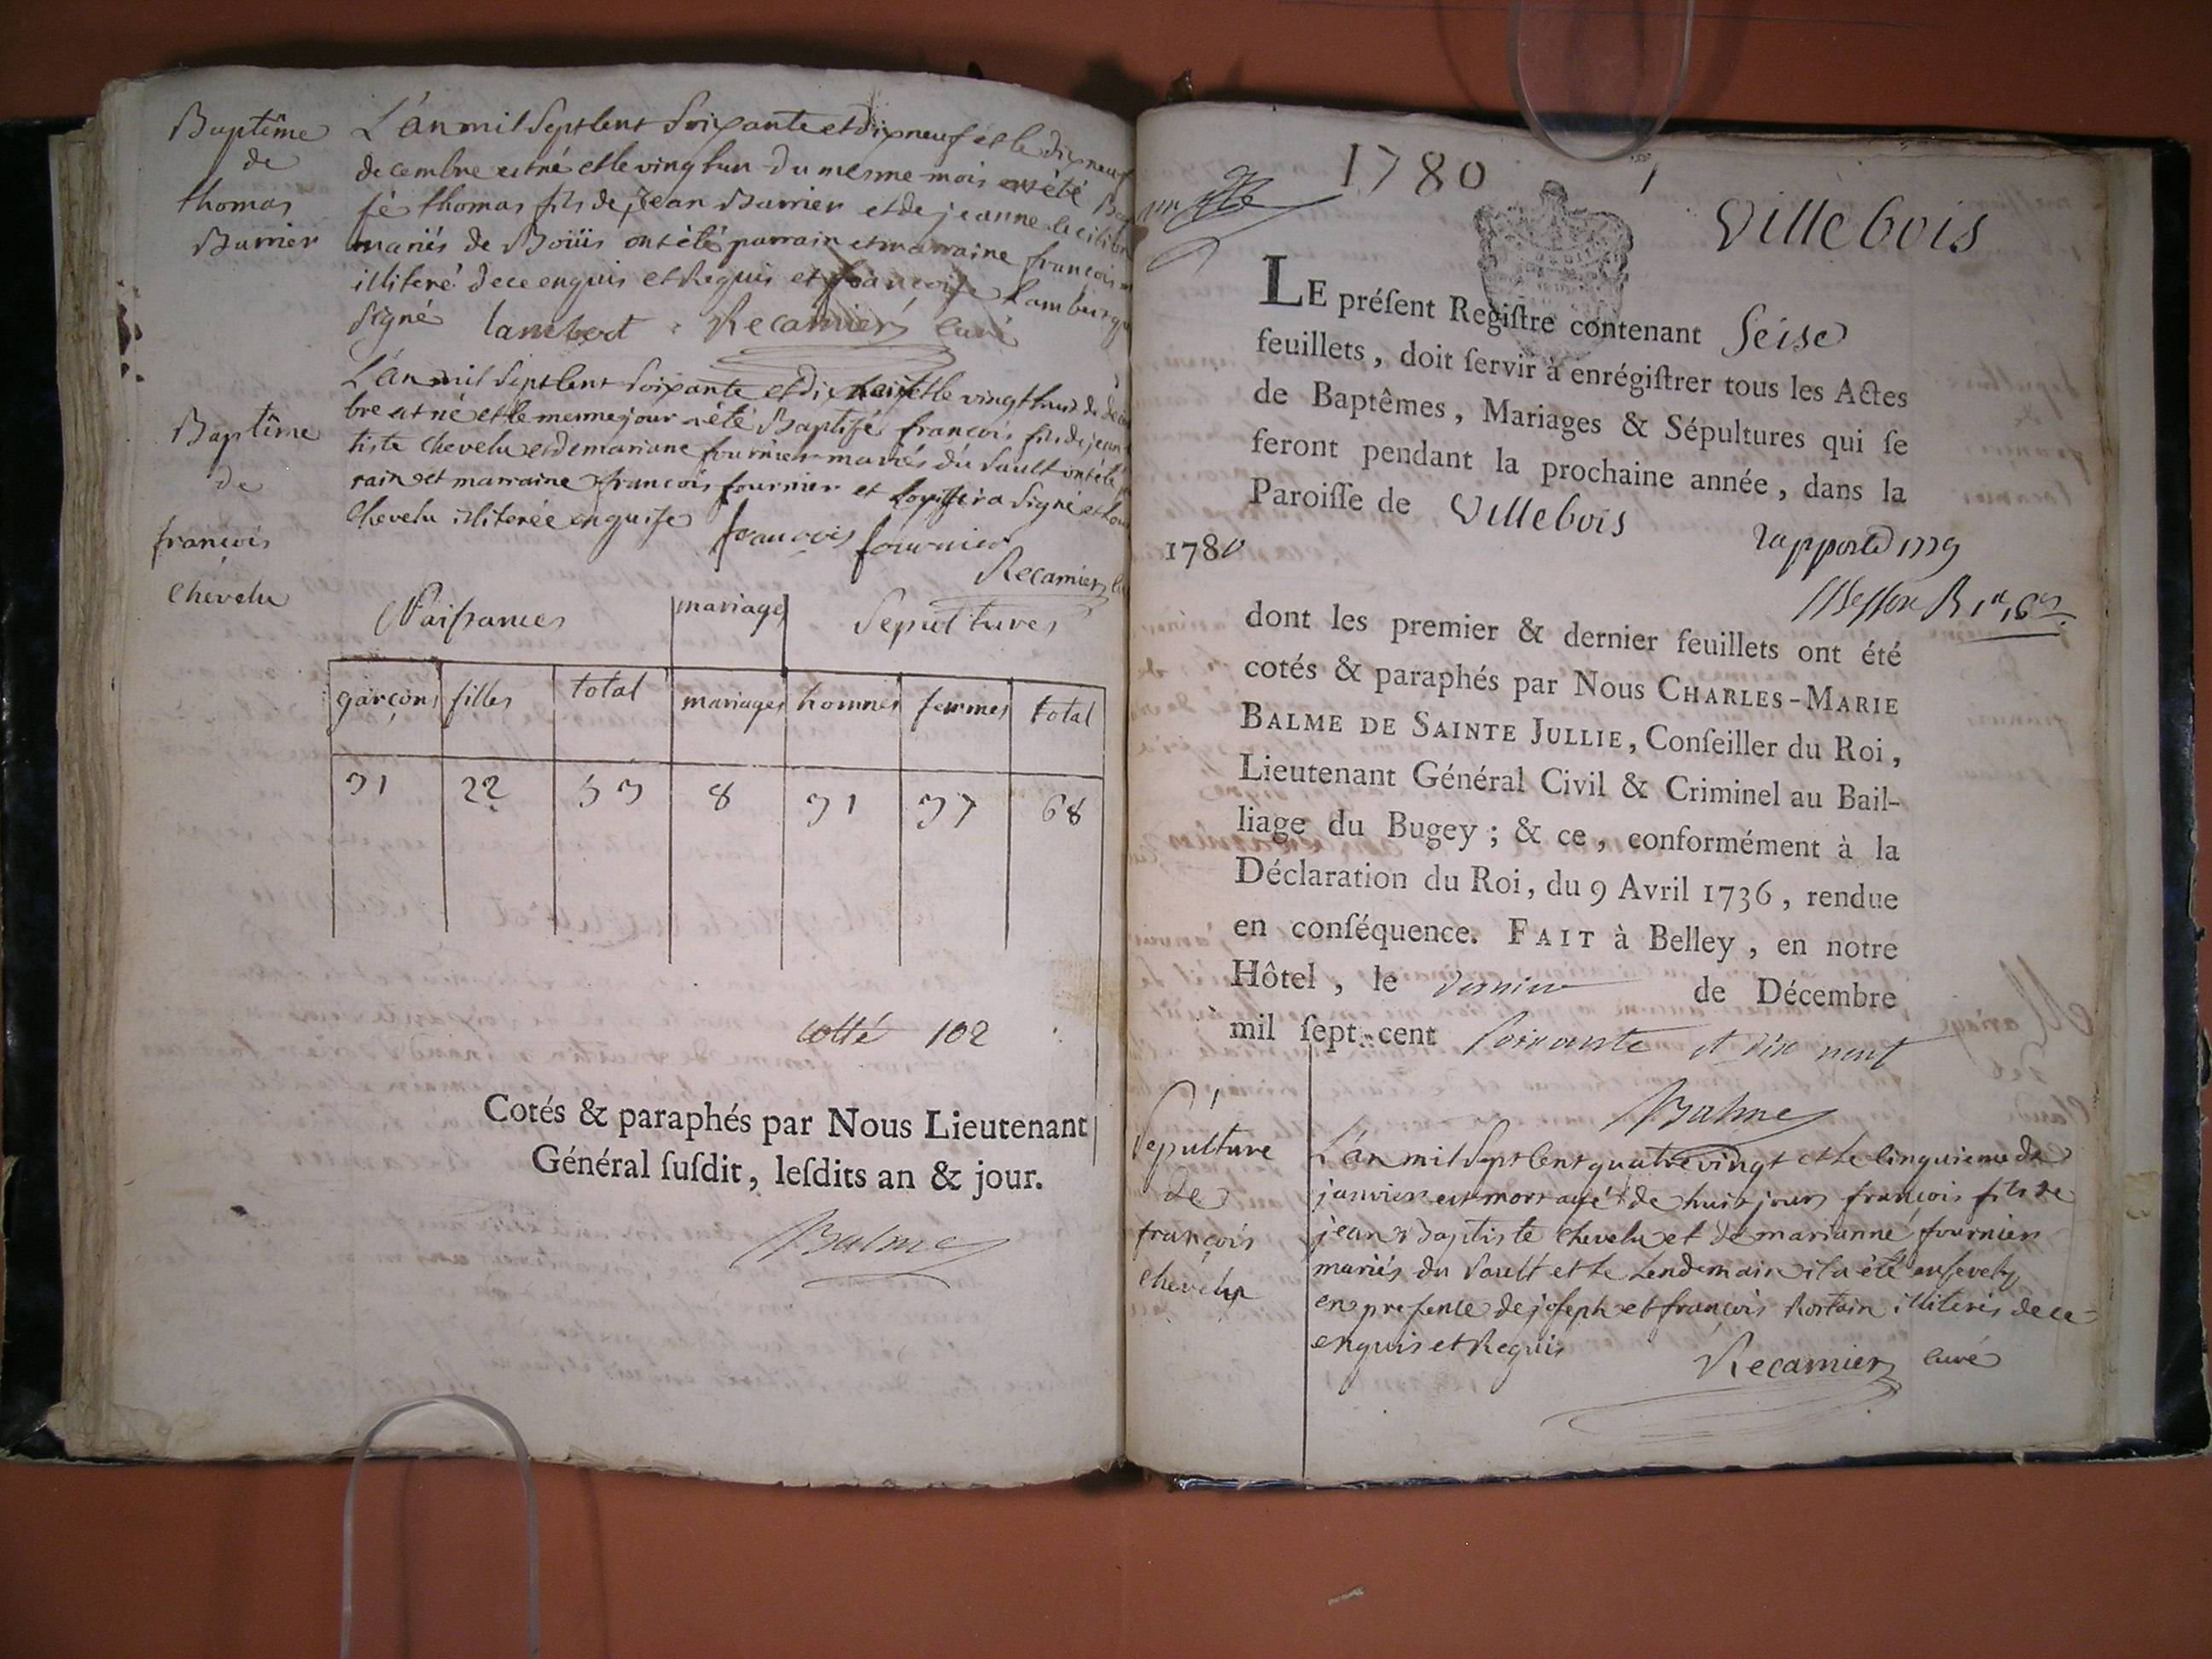 Baptême
de
thomas
Burrier
L'an mil sept cent soixante et dix neuf et le dix neuf
decembre est né et le vingt un du mesme mois a été
sé thomas fils de jean Burrier et de jeanne
mariés de Boüis ont été parrain et marraine francois
illiteré de ce enquis et Requis et francoise Lambert qui
signé lambert Recamier curé
Baptême
de
francois
Chevelu
L'an mil sept cent soixante et dix neuf et le vingt huit de
bre est né et le mesme jour a été Baptisé francois fils de jean
tiste Chevelu et de mariane fournier mariés du Sault ont été
rain et marraine francois fournier et Louise a signé et
Chevelu illiterée enquise francois fournier
Recamier
Naissances mariages Sepultures
garçons filles total mariages hommes femmes total
31 22 53 8 31 37 68
cotté 102
Cotés & paraphés par Nous Lieutenant
Général ſuſdit, leſdits an & jour.
Balme
1780 1
Villebois
LE préſent Regiſtre contenant Seise
feuillets, doit ſervir à enrégiſtrer tous les Actes
de Baptêmes, Mariages & Sépultures qui ſe
feront pendant la prochaine année, dans la
Paroiſſe de Villebois
1780
rapporté 1779
dont les premier & dernier feuillets ont été
cotés & paraphés par Nous CHARLES-MARIE
BALME DE SAINTE JULLIE, Conſeiller du Roi,
Lieutenant Général Civil & Criminel au Bail-
liage du Bugey ; & ce, conformément à la
Déclaration du Roi, du 9 Avril 1736, rendue
en conſéquence. FAIT à Belley, en notre
Hôtel, le dernier de Décembre
mil ſept-cent soixante et dix neuf
Balme
Sepulture
de
françois
chevelu
L'an mil sept cent quatre vingt et le cinquieme de
janvier est mort agé de huit jours françois fils de
jean Baptiste chevelu et de marianne fournier
mariés du Sault et le Lendemain il a été ensevely
en presence de joseph et françois Rortain illiterés de ce
enquis et Requis
Recamier curé